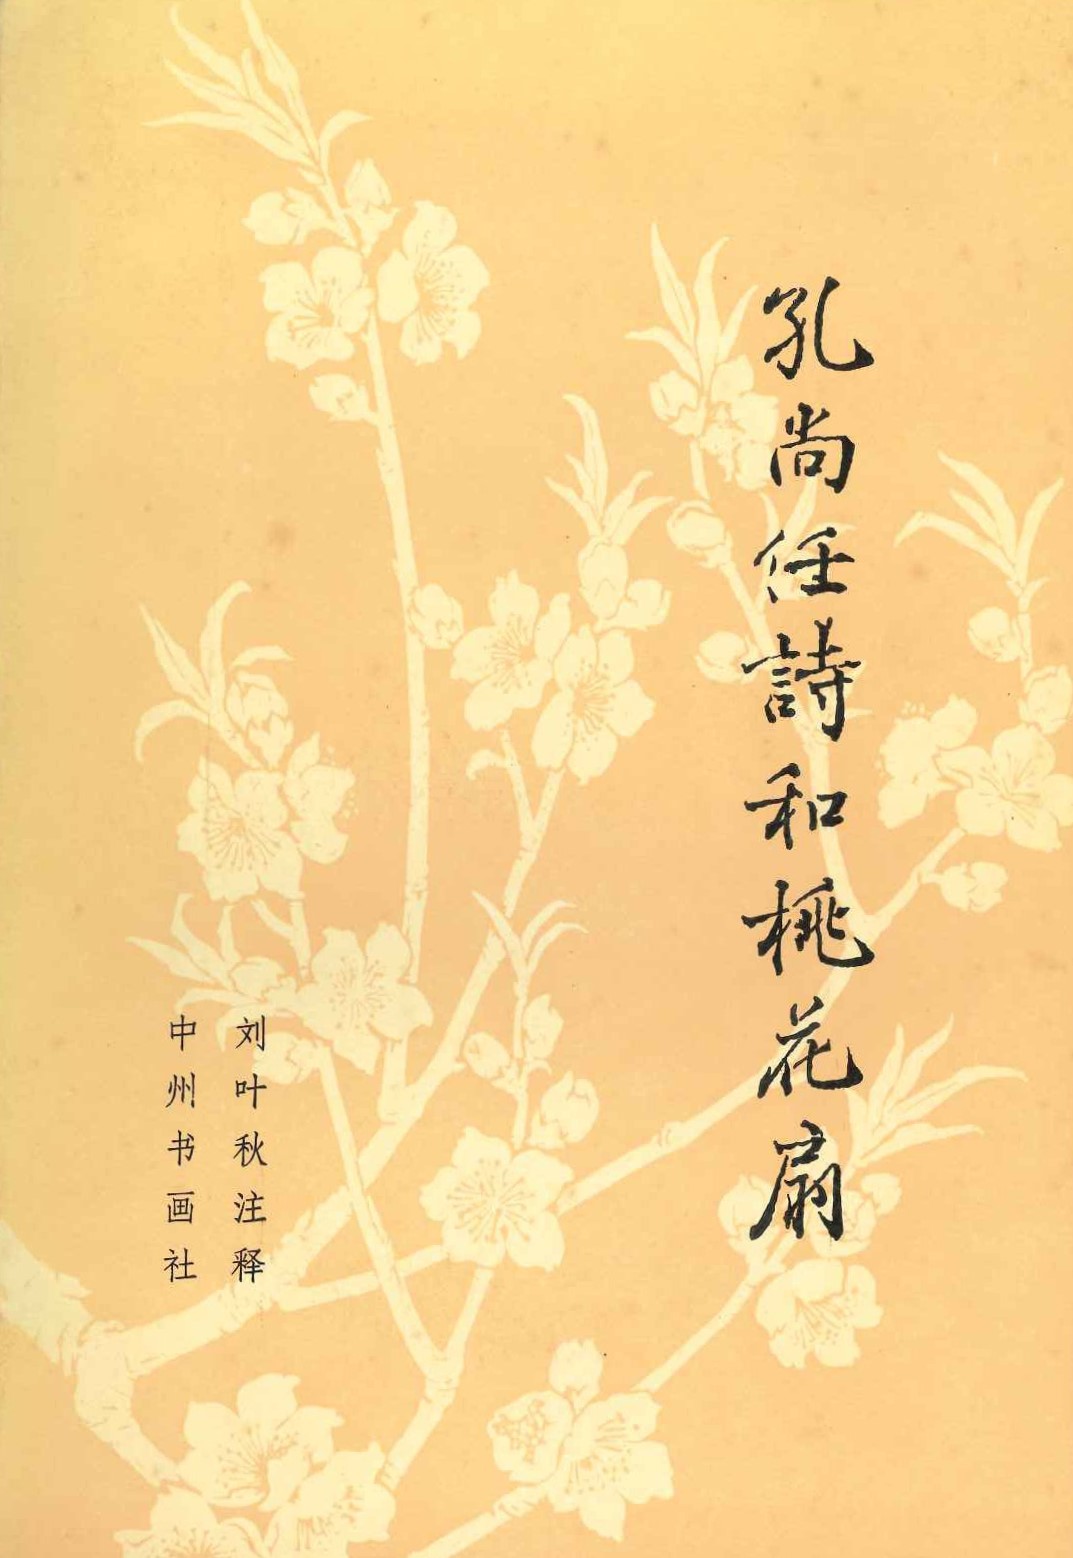 孔尚任詩和桃花扇
刘叶秋注释
中州书画社